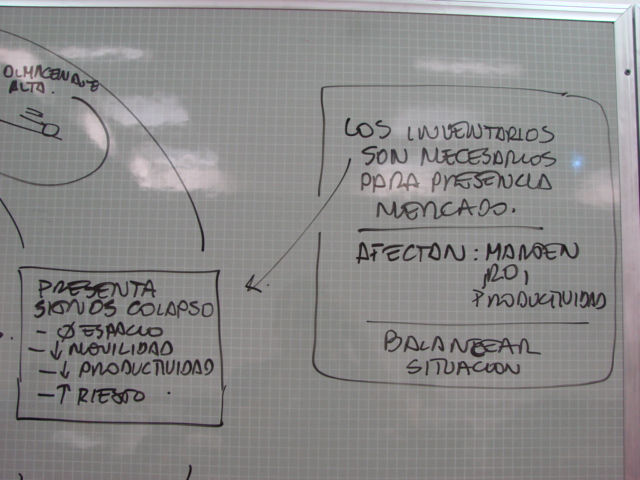 ALMACENAJE
ALTA.
LOS INVENTARIOS
SON NECESARIOS
PARA PRESENCIA
MERCADO.
AFECTAN: MARGEN
, RO,
PRODUCTIVIDAD
BALANCEAR
SITUACION
PRESENTA
SIGNOS COLAPSO
- Ø ESPACIO
- ↓ MOVILIDAD
- ↓ PRODUCTIVIDAD
- ↑ RIESGO